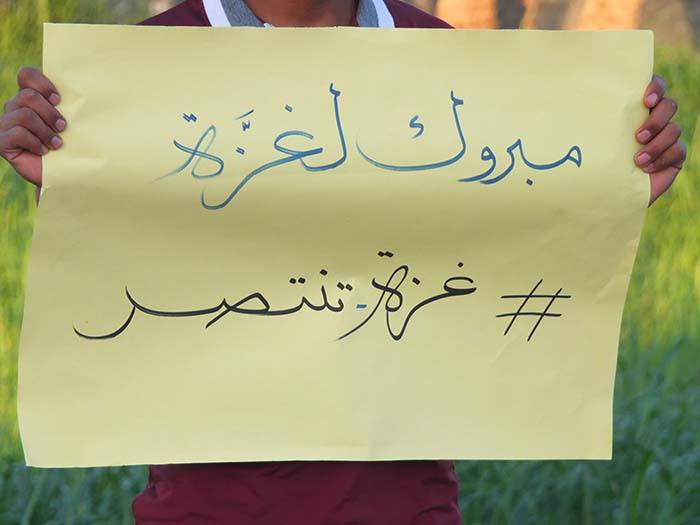 مبروك لغزَّة
#غزة-تنتصر